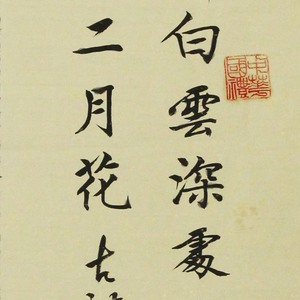 白雲深處
二月花
古